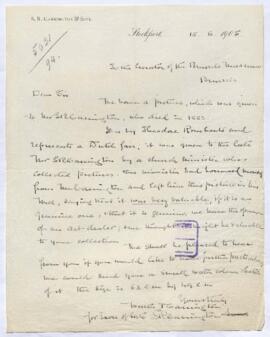 S. R. CARRINGTON & SONS.
5931
94.
Stockport 15. 6. 1905
To the Curator of the Brussels Museum
Brussels
Dear Sir
We have a picture, which was given
to Mr S R Carrington, who died in 1883
It is by Theodore Rombouts and
represents a Dutch fair, it was given to the late
Mr S R Carrington by a church minister who
collected pictures. This minister had borrowed money
from Mr Carrington and left him this picture in his
Will, saying that it was very valuable, if it is a
genuine one, & that it is genuine we have the opinion
of an art dealer, we thought it might be valuable
to your collection. We should be pleased to hear
from you if you would like to
we could send you a small water colour sketch
of it. The size is
Yours truly
Carrington
for Sons of late S R Carrington